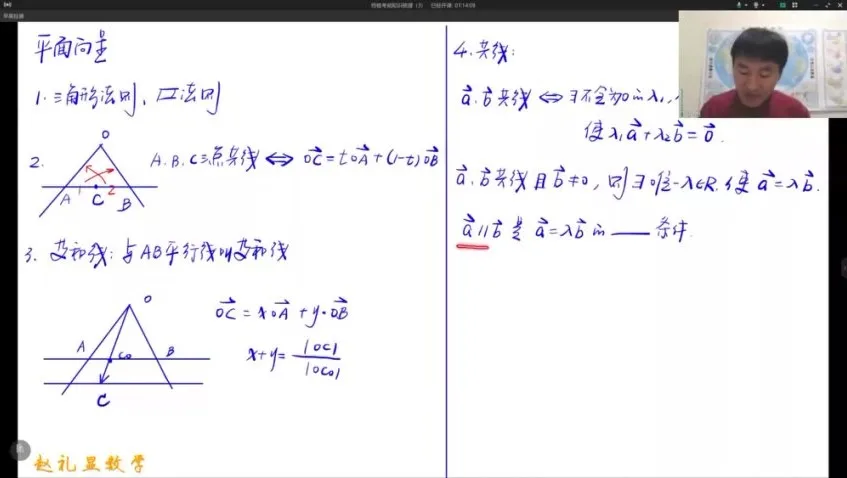 平面向量
1. 三角形法则, 口法则
2.
O
A
1
C
2
B
A、B、C三点共线 ⇔ OC⃗=tOA⃗+(1-t)OB⃗
3. 等和线: 与AB平行线叫等和线
O
A
C₀
B
C
OC⃗ = xOA⃗ + y·OB⃗
x+y= |OC| / |OC₀|
赵礼显数学
4. 共线:
a⃗、b⃗共线 ⇔ ∃不全为0的λ₁,
使λ₁a⃗+λ₂b⃗=0⃗.
a⃗、b⃗共线且b⃗≠0, 则∃唯一λ∈R, 使a⃗=λb⃗.
a⃗∥b⃗是a⃗=λb⃗的____条件.